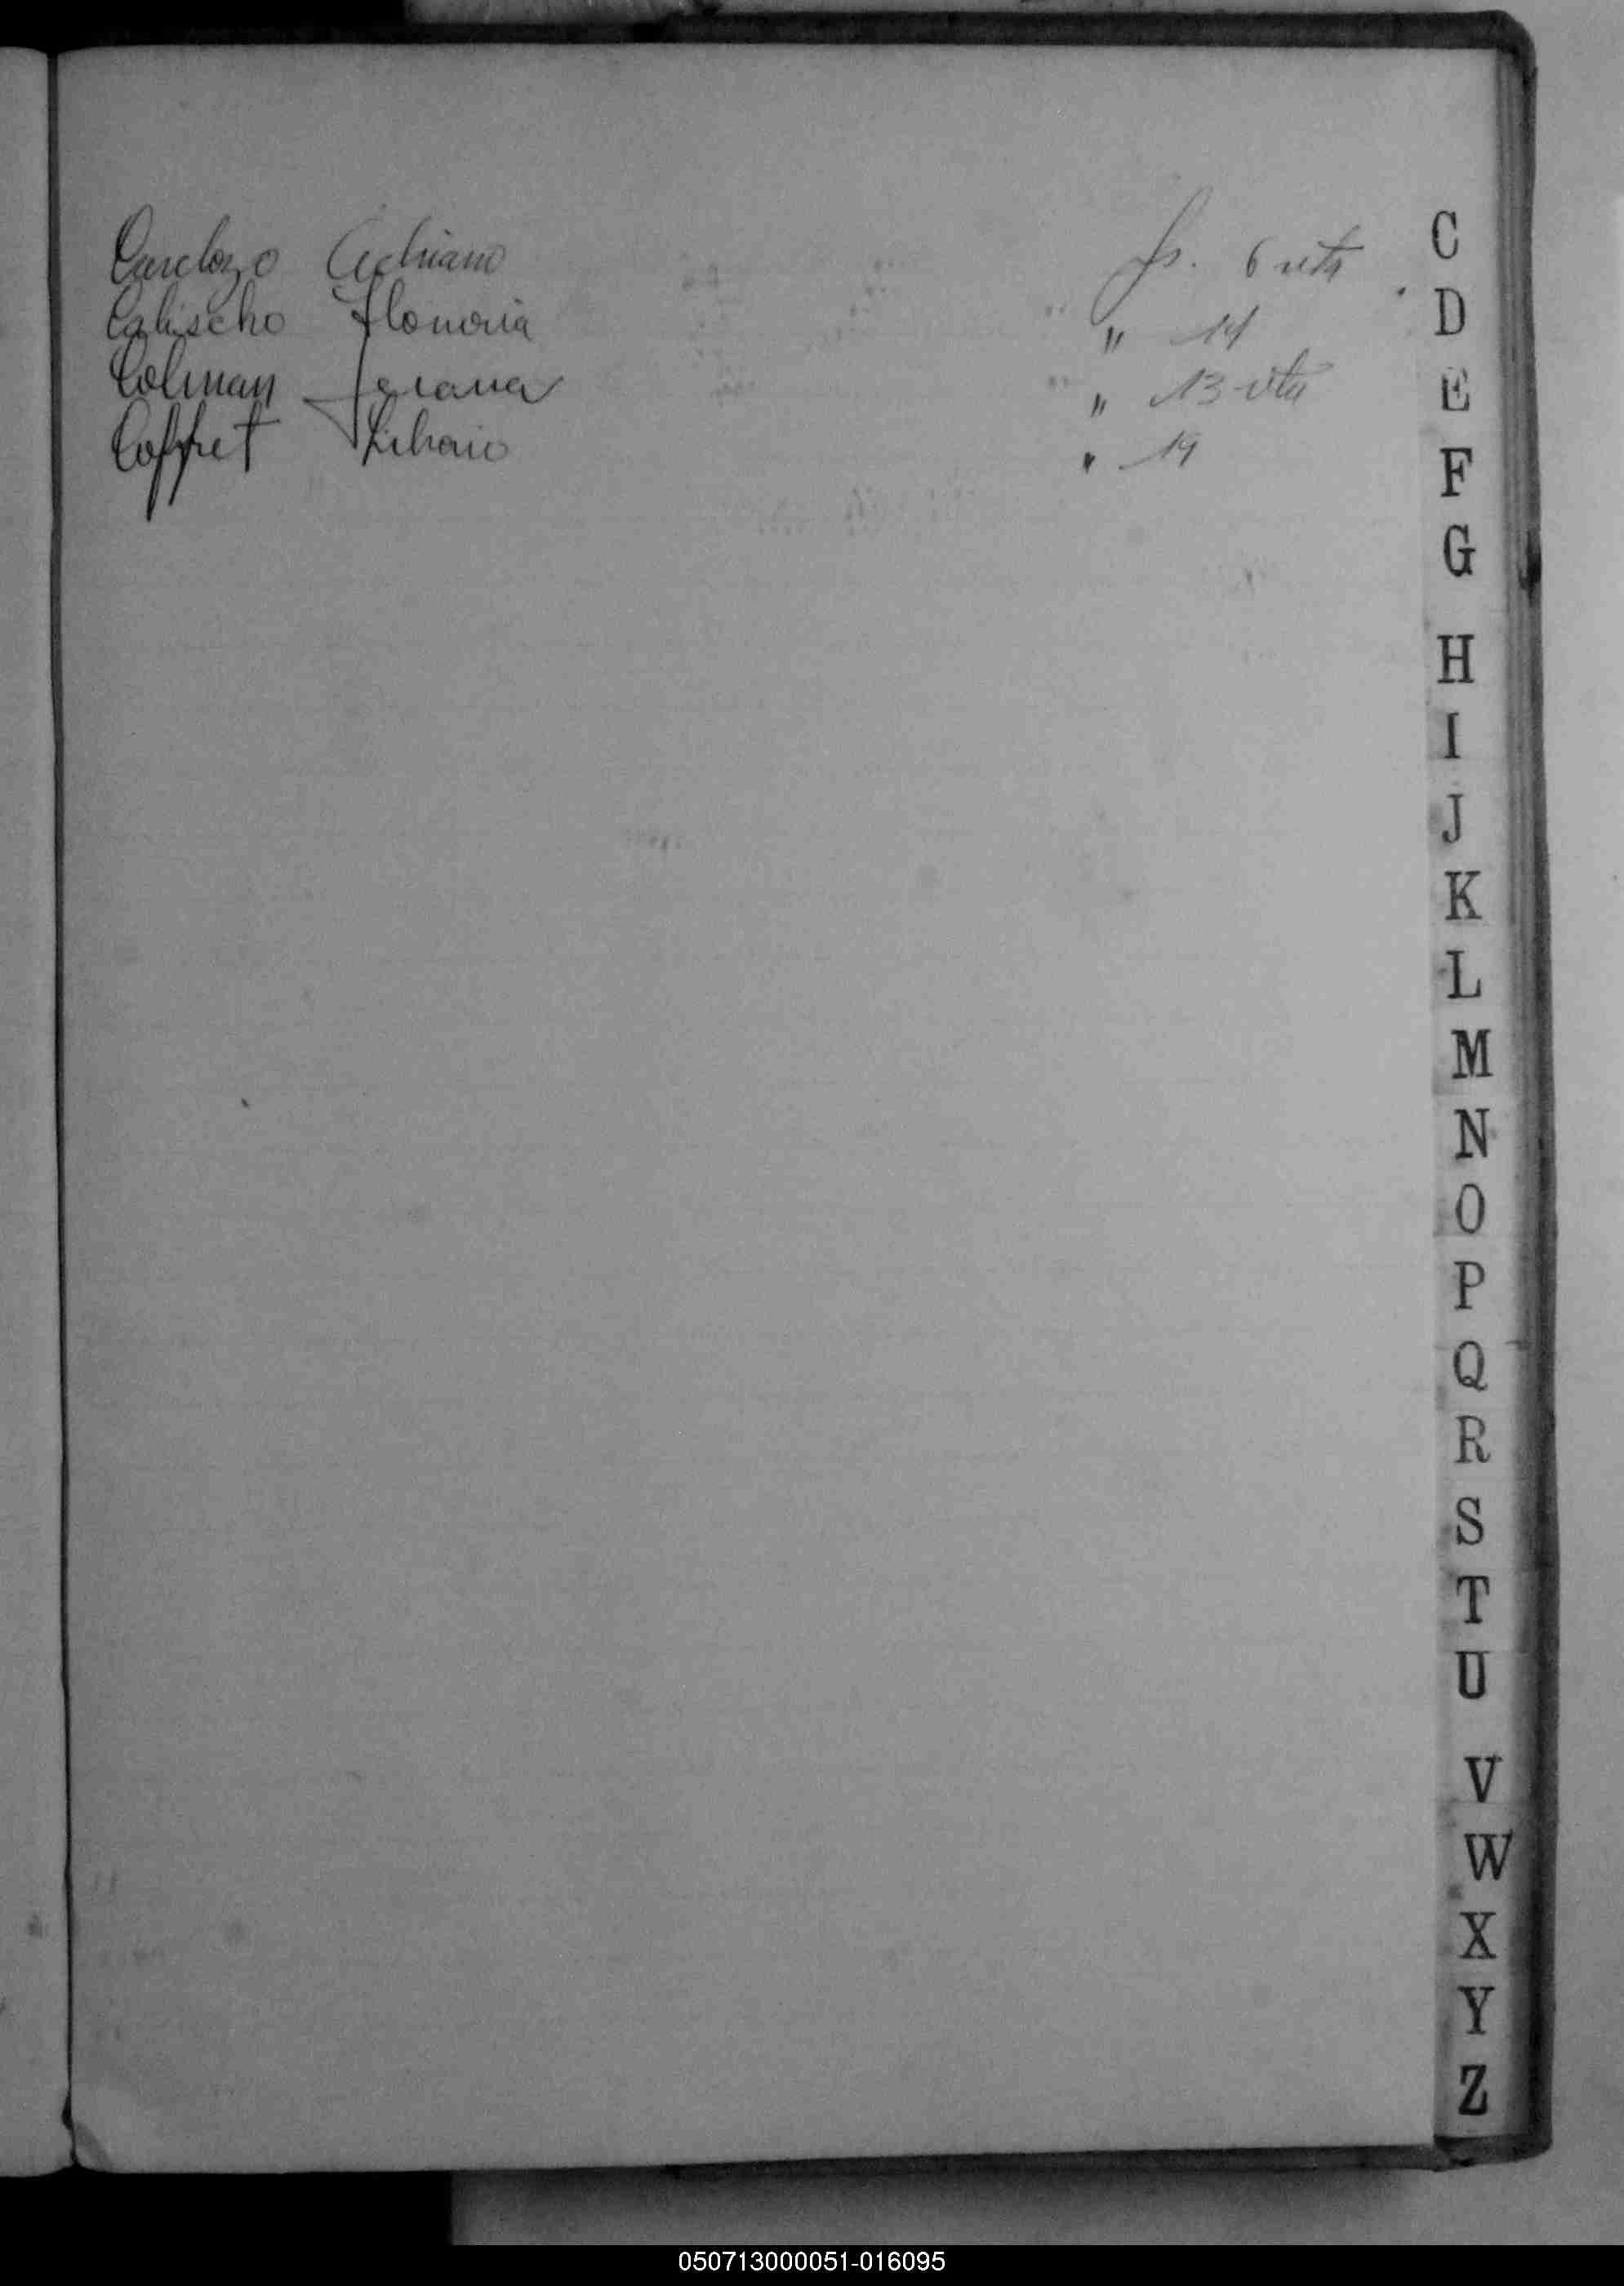 Cardozo Adriano fs. 6 vta
Calischo Honoria " 11
Colman Juana " 13 vta
Coffret " 19
C
D
E
F
G
H
I
J
K
L
M
N
O
P
Q
R
S
T
U
V
W
X
Y
Z
050713000051-016095